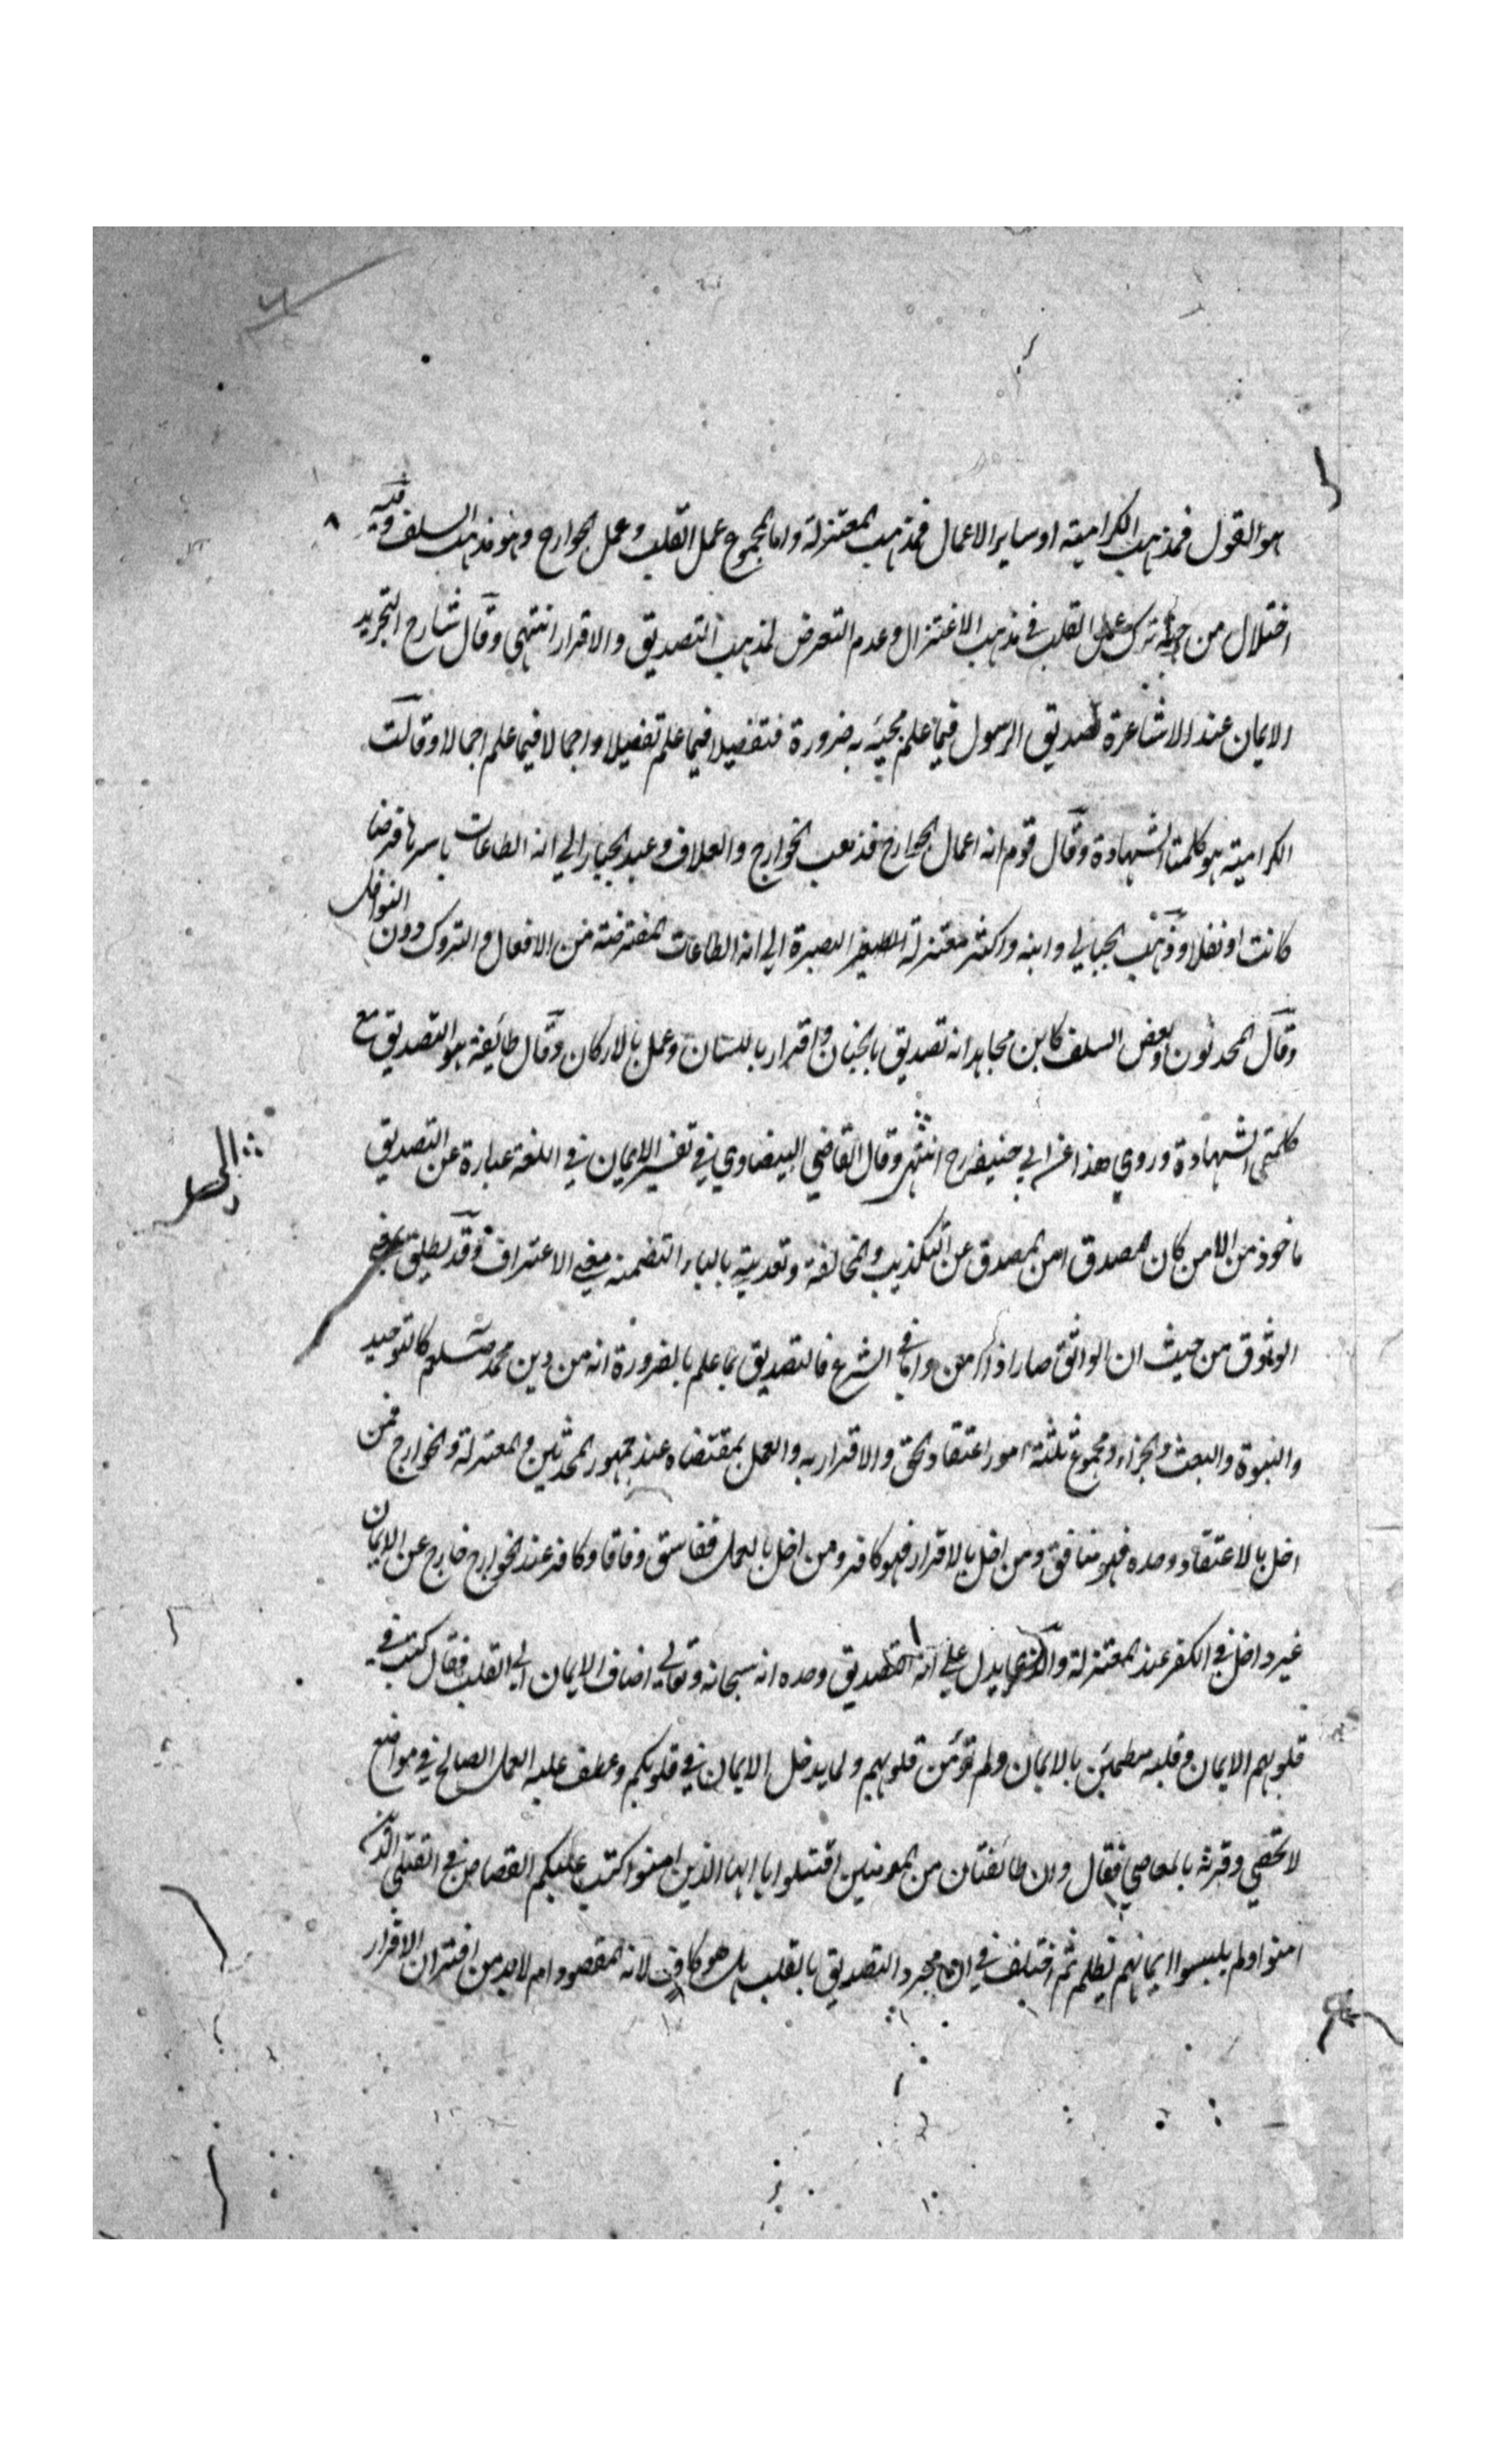 هو القول فمذهب الكرامية او ساير الاعمال فمذهب المعتزلة واما مجموع عمل القلب وعمل الجوارح وهو مذهب السلف وفيه
اختلال من جهة ترك عمل القلب في مذهب الاعتزال وعدم التعرض لمذهب التصديق والاقرار انتهي وقال شارح التجريد
الايمان عند الاشاعرة تصديق الرسول فيما علم مجيئه به ضرورة فتفصيلا فيما علم تفصيلا واجمالا فيما علم اجمالا وقالت
الكرامية هو كلمتا الشهادة وقال قوم انه اعمال الجوارح فذهب الخوارج والعلاف وعبد الجبار الي انه الطاعات باسرها فرضا
كانت او نفلا وذهب الجبايي وابنه واكثر معتزلة البصرة الي انه الطاعات المفترضة من الافعال والتروك دون النوافل
وقال المحدثون وبعض السلف كابن مجاهد انه تصديق بالجنان واقرار باللسان وعمل بالاركان وقال طائفة هو التصديق مع
كلمتي الشهادة وروي هذا عن ابي حنيفة رح انتهي وقال القاضي البيضاوي في تفسير الايمان في اللغة عبارة عن التصديق
ماخوذ من الامن كان المصدق امن المصدق عن التكذيب والمخالفة وتعديته بالباء لتضمنه معني الاعتراف وقد يطلق بمعني
الوثوق من حيث ان الواثق صار ذا امن واما في الشرع فالتصديق بما علم بالضرورة انه من دين محمد صلعم كالتوحيد
والنبوة والبعث والجزاء ومجموع ثلثة امور اعتقاد الحق والاقرار به والعمل بمقتضاه عند جمهور المحدثين والمعتزلة والخوارج فمن
اخل بالاعتقاد وحده فهو منافق ومن اخل بالاقرار فهو كافر ومن اخل بالعمل ففاسق وفاقا وكافر عند الخوارج خارج عن الايمان
غير داخل في الكفر عند المعتزلة والذي يدل علي انه التصديق وحده انه سبحانه وتعالي اضاف الايمان الي القلب فقال كتب في
قلوبهم الايمان وقلبه مطمئن بالايمان ولم تؤمن قلوبهم ولما يدخل الايمان في قلوبكم وعطف عليه العمل الصالح في مواضع
لا تحصي وقرنه بالمعاصي فقال وان طائفتان من المومنين اقتتلوا يا ايها الذين امنوا كتب عليكم القصاص في القتلي الذين
امنوا ولم يلبسوا ايمانهم بظلم ثم اختلف في ان مجرد التصديق بالقلب هل هو كاف لانه المقصود ام لا بد من اقتران الاقرار